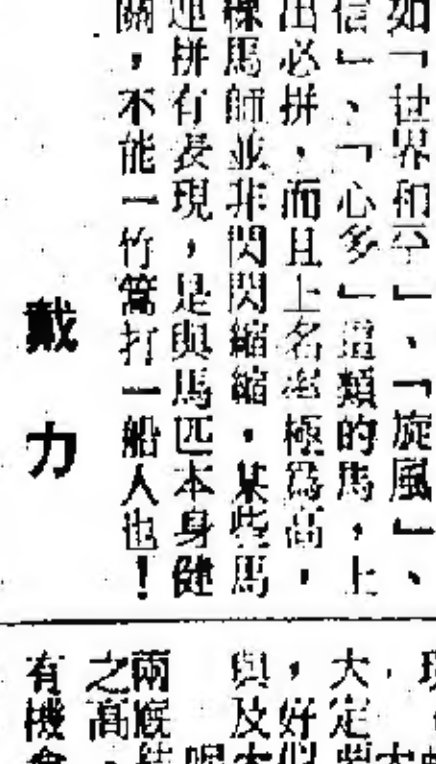 如「世界和平」、「旋風」、
信」、「心多」這類的馬,上
出必拼,而且上名率極爲高,
練馬師並非閃閃縮縮,某些馬
連拼有表現,是與馬匹本身健
關,不能一竹篙打一船人也!
戴力
大定
,好似
與及
兩廐
之高
有機會